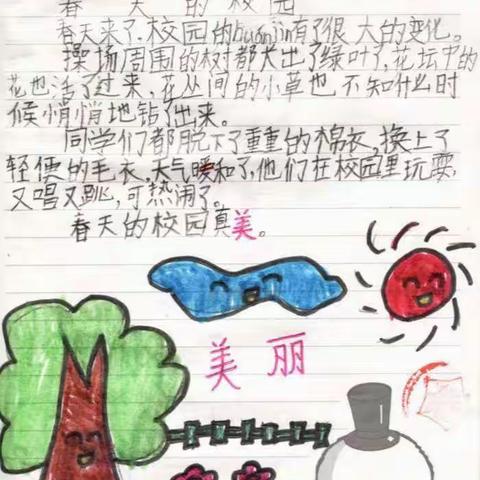 春天的校园
春天来了,校园的huánjìn有了很大的变化。
操场周围的树都大出了绿叶了,花坛中的
花也活了过来,花丛间的小草也不知什么时
候悄悄地钻了出来。
同学们都脱下了重重的棉衣,换上了
轻便的毛衣,天气暖和了,他们在校园里玩耍,
又唱又跳,可热闹了。
春天的校园真美。
美丽